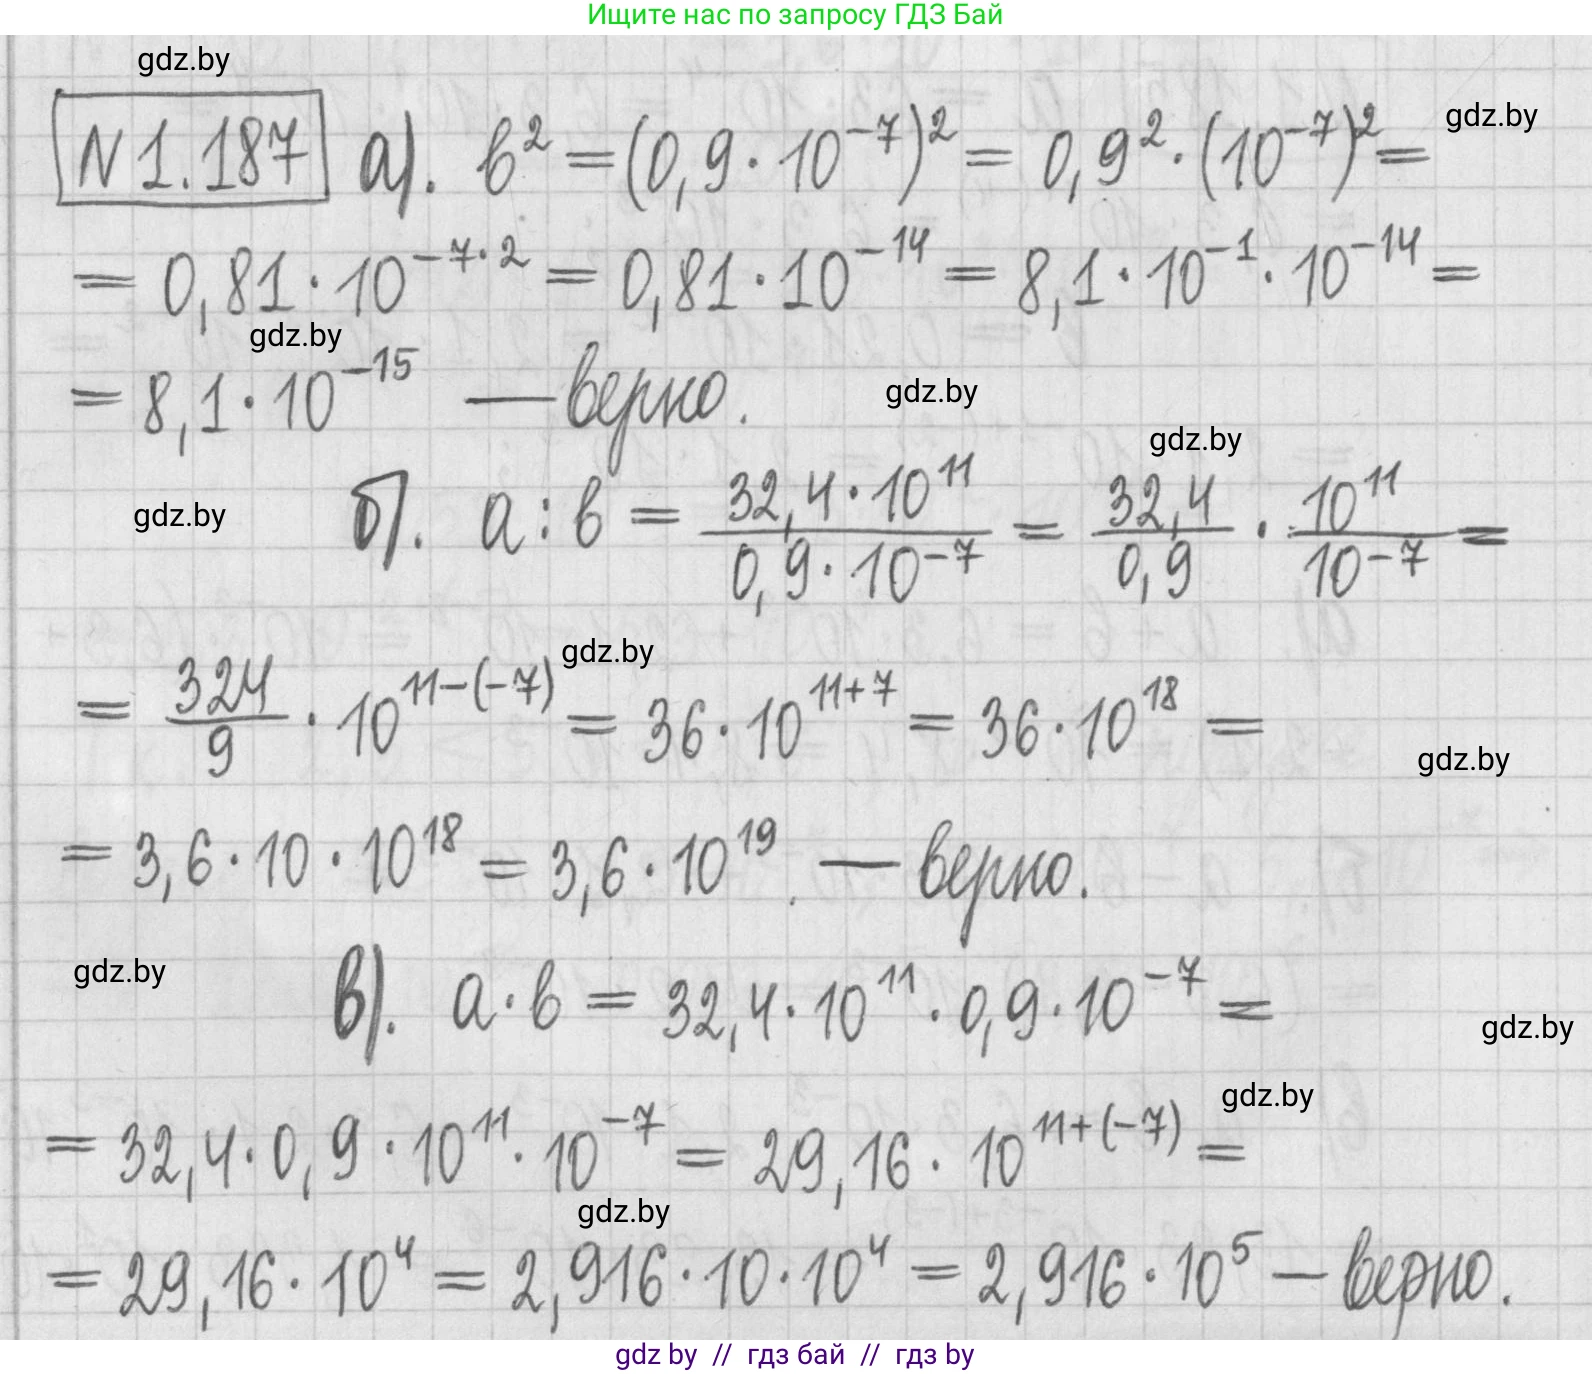 Ищите нас по запросу ГДЗ Бай
gdz.by
gdz.by
N 1.187 а). b² = (0,9 · 10⁻⁷)² = 0,9² · (10⁻⁷)² =
= 0,81 · 10⁻⁷·² = 0,81 · 10⁻¹⁴ = 8,1 · 10⁻¹ · 10⁻¹⁴ =
gdz.by
= 8,1 · 10⁻¹⁵ — верно.
gdz.by
gdz.by
gdz.by
б). a : b = (32,4 · 10¹¹)/(0,9 · 10⁻⁷) = 32,4/0,9 · 10¹¹/10⁻⁷ =
gdz.by
= 324/9 · 10¹¹⁻⁽⁻⁷⁾ = 36 · 10¹¹⁺⁷ = 36 · 10¹⁸ =
gdz.by
= 3,6 · 10 · 10¹⁸ = 3,6 · 10¹⁹. — верно.
gdz.by
в). a · b = 32,4 · 10¹¹ · 0,9 · 10⁻⁷ =
gdz.by
gdz.by
= 32,4 · 0,9 · 10¹¹ · 10⁻⁷ = 29,16 · 10¹¹⁺⁽⁻⁷⁾ =
gdz.by
= 29,16 · 10⁴ = 2,916 · 10 · 10⁴ = 2,916 · 10⁵ — верно.
gdz by // гдз бай // гдз by